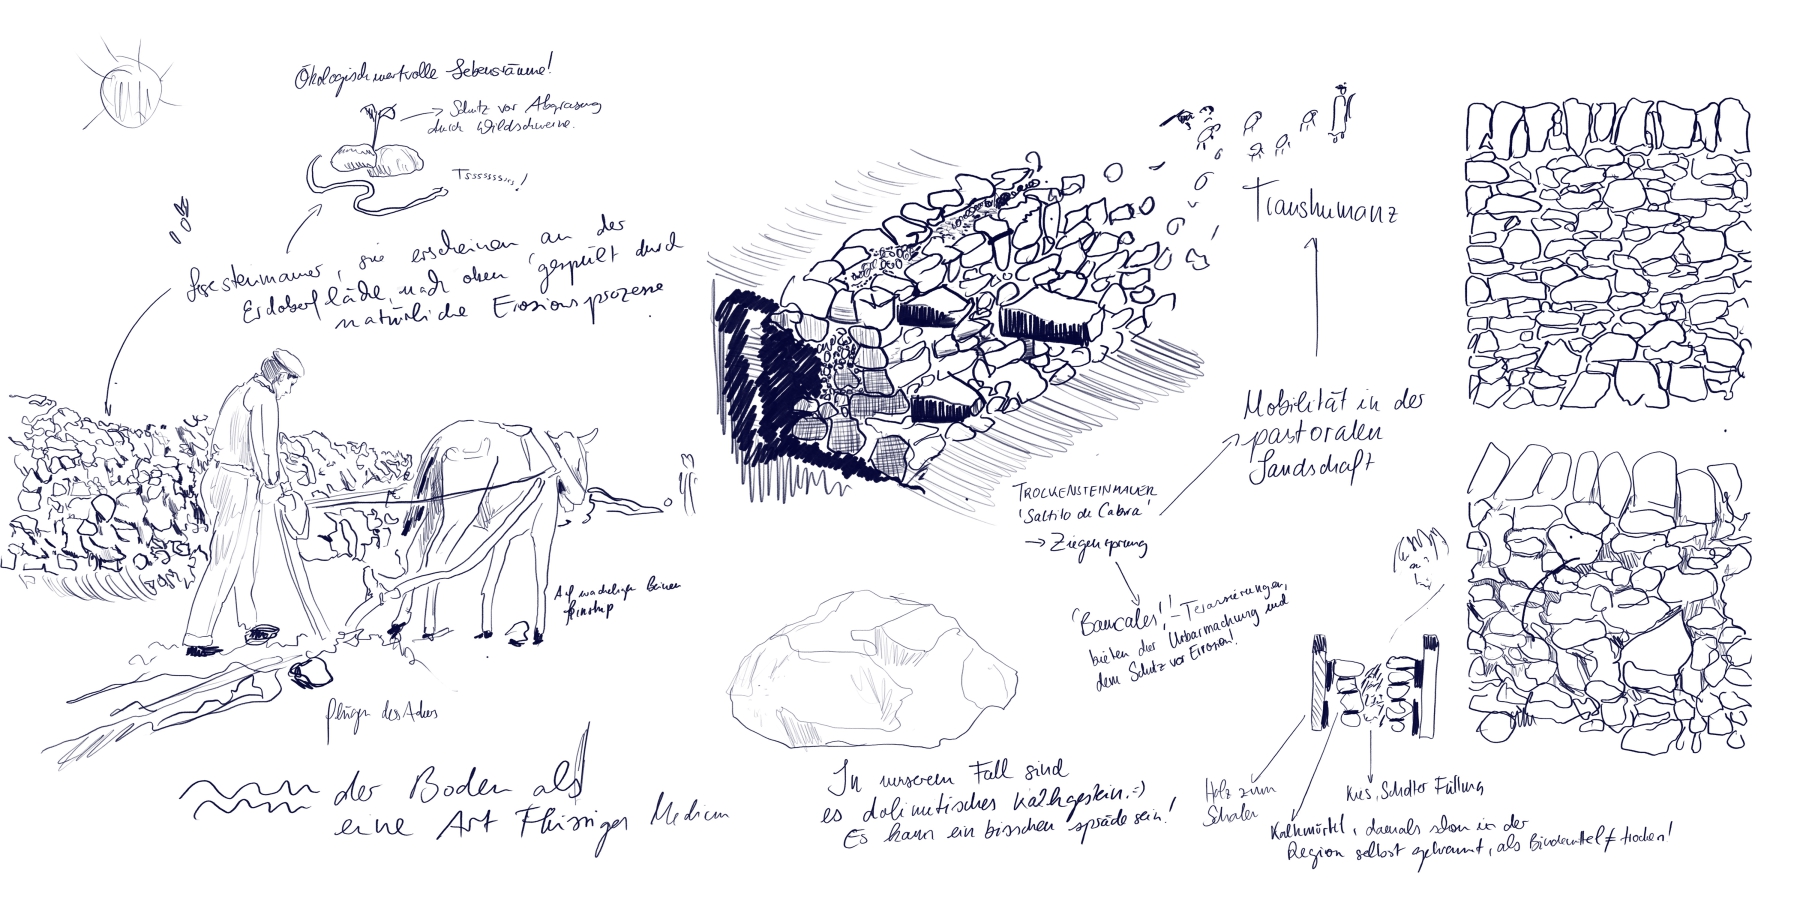 Ökologisch wertvolle Lebensräume!
→ Schutz vor Abgrasung
durch Wildschweine.
Tssssssss!
Lesesteinmauer, sie erscheinen an der
Erdoberfläche, nach oben 'gespült durch
natürliche Erosionsprozesse
Auf wackeligen Beinen
pflügen des Ackers
der Boden als
eine Art Flüssiges Medium
Transhumanz
Mobilität in der
pastoralen
Landschaft
TROCKENSTEINMAUER
'Saltilo de Cabra'
→ Ziegensprung
'Bancales'! – Terrassierungen,
bieten der Urbarmachung und
dem Schutz vor Erosion!
In unserem Fall sind
es dolimitisches Kalkgestein. =)
Es kann ein bisschen spröde sein!
Holz zum
Schalen
Kies, Schotter Füllung
Kalkmörtel, damals schon in der
Region selbst gebrannt, als Bindemittel ≠ trocken!